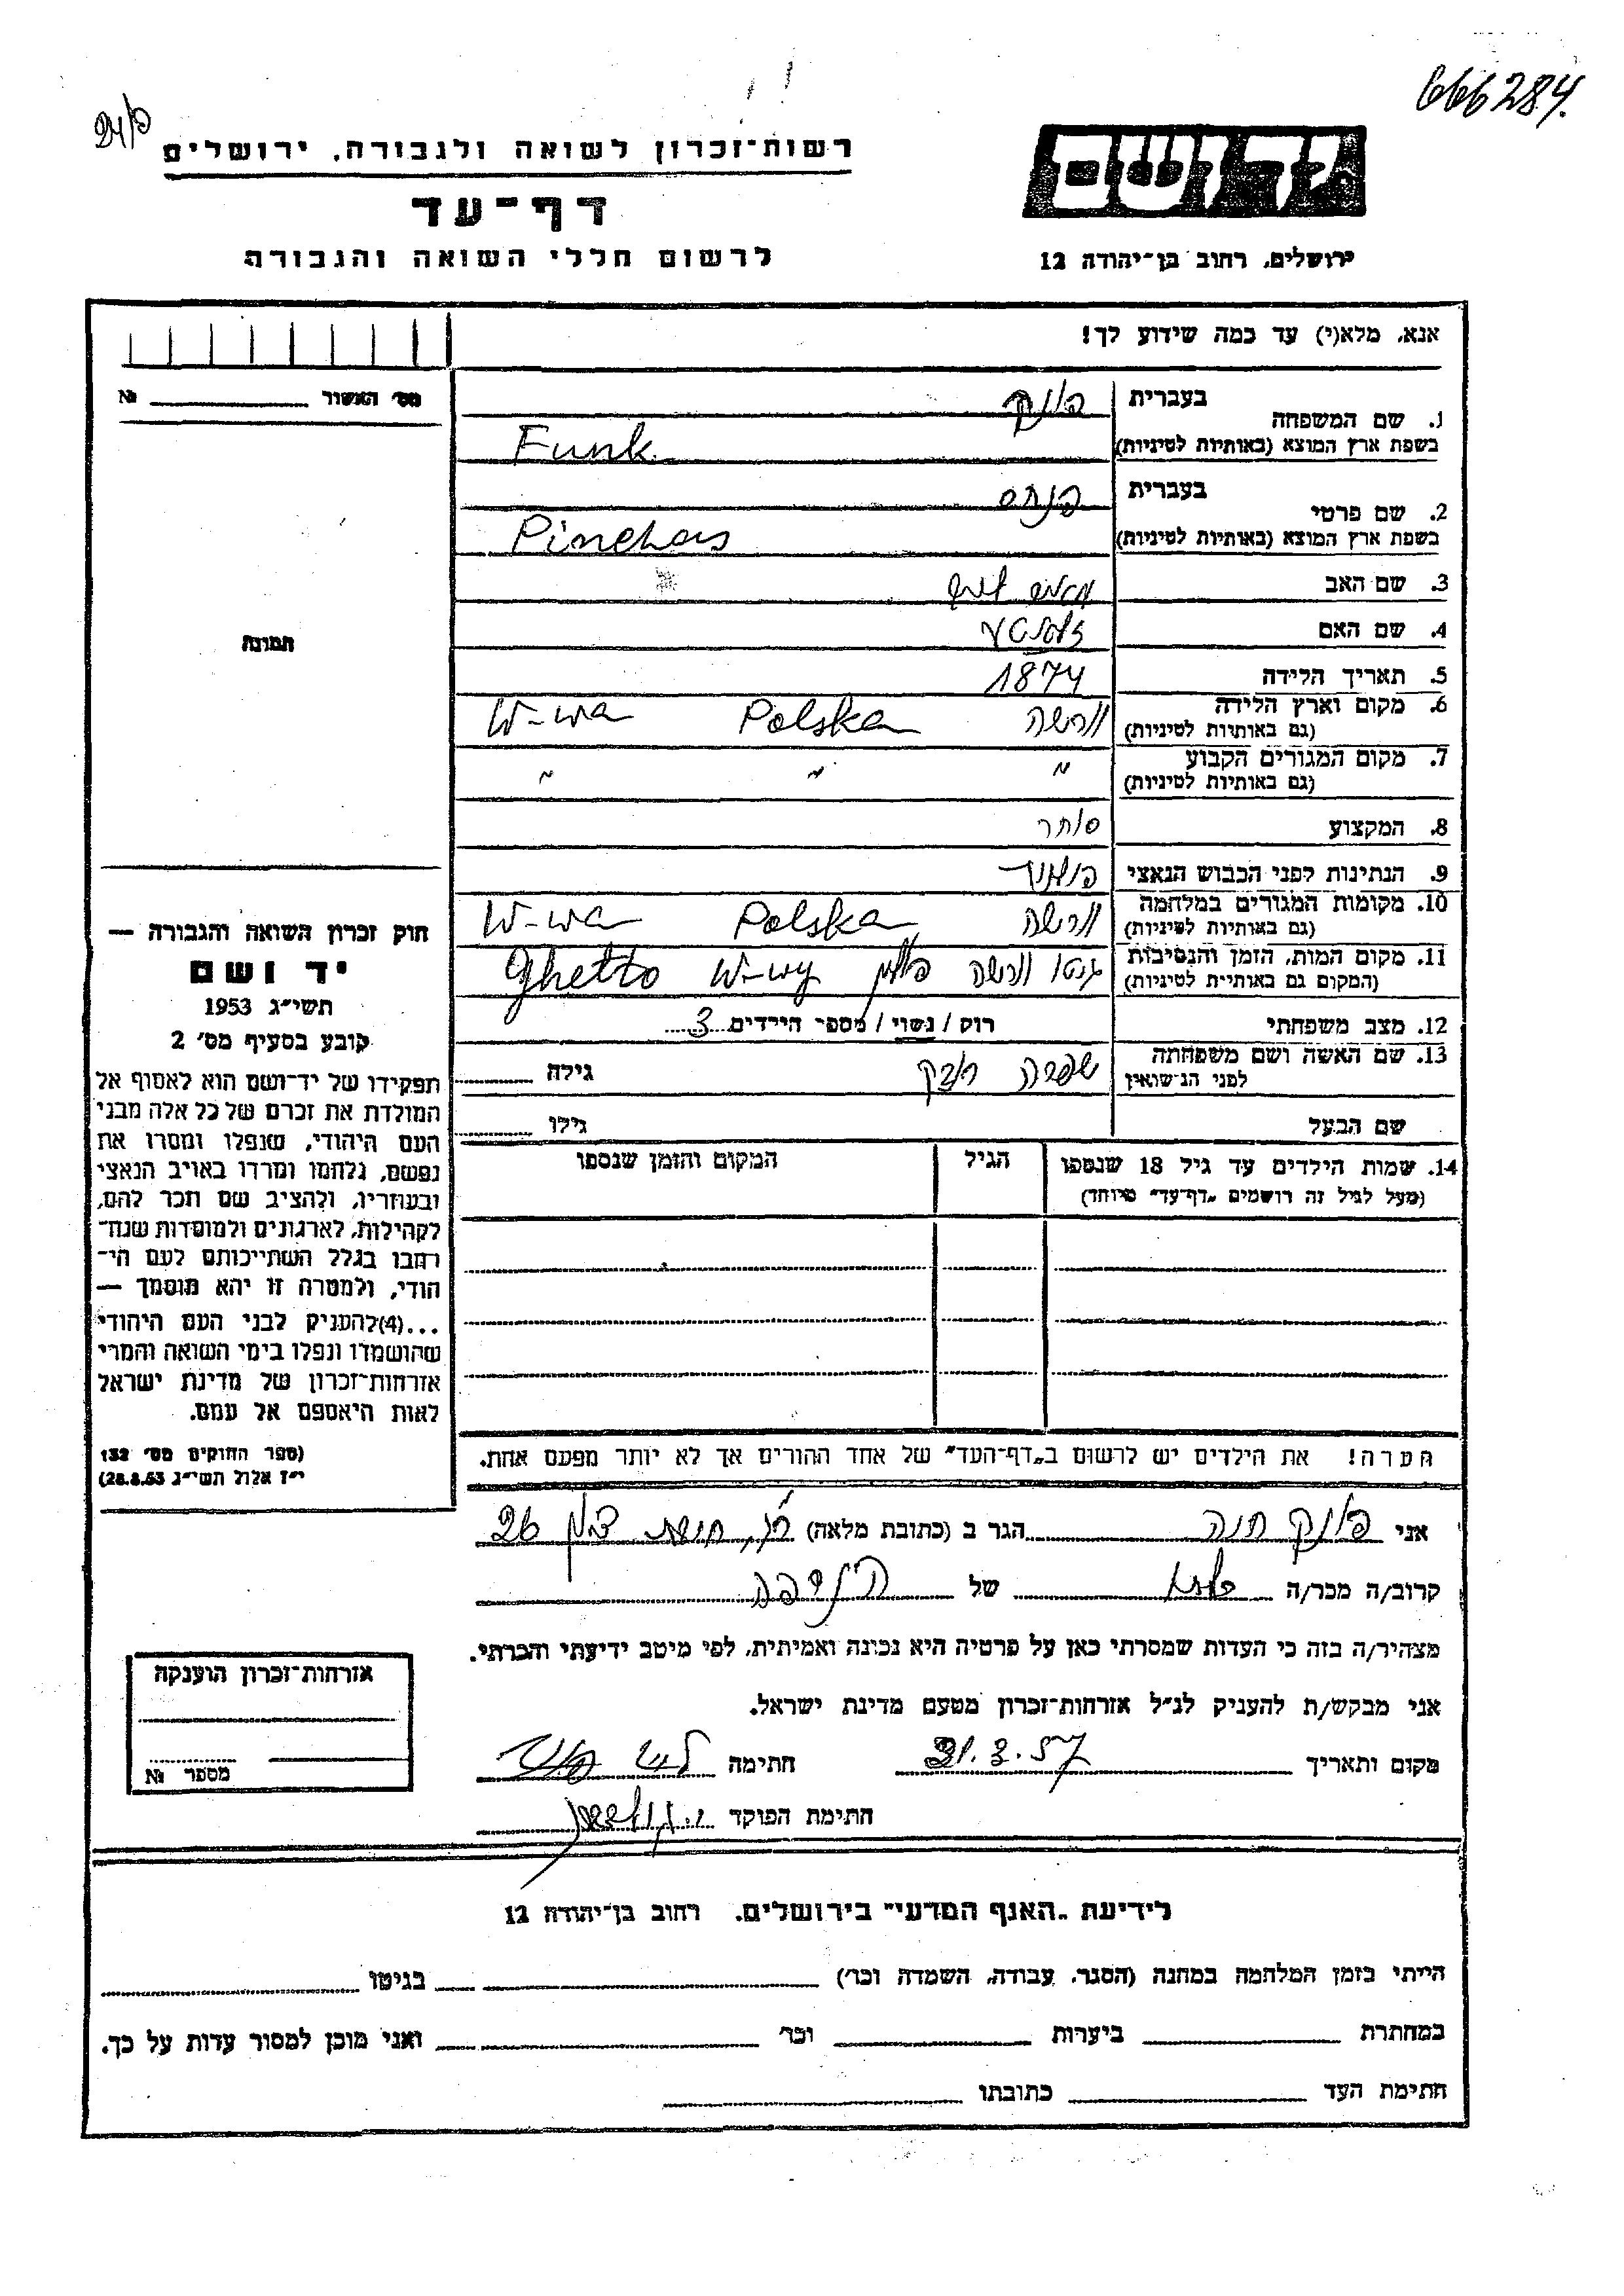 666284.
רשות־זכרון לשואה ולגבורה, ירושלים
דף־עד
לרשום חללי השואה והגבורה
יד ושם
ירושלים, רחוב בן־יהודה 12
אנא, מלא(י) עד כמה שידוע לך!
מס׳ האשור № ____
1. שם המשפחה בעברית פונק
בשפת ארץ המוצא (באותיות לטיניות) Funk
2. שם פרטי בעברית פנחס
בשפת ארץ המוצא (באותיות לטיניות) Pinchas
3. שם האב
4. שם האם
5. תאריך הלידה 1874
6. מקום וארץ הלידה (גם באותיות לטיניות) וורשה Polska W-wa
7. מקום המגורים הקבוע (גם באותיות לטיניות) " " "
8. המקצוע סוחר
9. הנתינות לפני הכבוש הנאצי
10. מקומות המגורים במלחמה (גם באותיות לטיניות) וורשה Polska W-wa
11. מקום המות, הזמן והנסיבות (המקום גם באותיות לטיניות) גטו וורשה פולין Ghetto W-wy
12. מצב משפחתי רוק / נשוי / מספר הילדים 3
13. שם האשה ושם משפחתה לפני הנשואין שפרה גילה
שם הבעל גילו
14. שמות הילדים עד גיל 18 שנספו (מעל לגיל זה רושמים „דף־עד" מיוחד) הגיל המקום והזמן שנספו
הערה! את הילדים יש לרשום ב„דף־העד" של אחד ההורים אך לא יותר מפעם אחת.
תמונה
חוק זכרון השואה והגבורה —
יד ושם
תשי״ג 1953
קובע בסעיף מס׳ 2
תפקידו של יד־ושם הוא לאסוף אל
המולדת את זכרם של כל אלה מבני
העם היהודי, שנפלו ומסרו את
נפשם, נלחמו ומרדו באויב הנאצי
ובעוזריו, ולהציב שם וזכר להם,
לקהילות, לארגונים ולמוסדות שנח־
רבו בגלל השתייכותם לעם הי־
הודי, ולמטרה זו יהא מוסמך —
...(4)להעניק לבני העם היהודי
שהושמדו ונפלו בימי השואה והמרי
אזרחות־זכרון של מדינת ישראל
לאות היאספם אל עמם.
(ספר החוקים מס׳ 132
י״ז אלול תשי״ג 28.8.53)
אני פונק חנה הגר ב (כתובת מלאה) 26
קרוב/ה מכר/ה של
מצהיר/ה בזה כי העדות שמסרתי כאן על פרטיה היא נכונה ואמיתית, לפי מיטב ידיעתי והכרתי.
אני מבקש/ת להעניק לנ״ל אזרחות־זכרון מטעם מדינת ישראל.
מקום ותאריך 31.3.57 חתימה
חתימת הפוקד
אזרחות־זכרון הוענקה
מספר №
לידיעת „האגף המדעי" בירושלים. רחוב בן־יהודה 12
הייתי בזמן המלחמה במחנה (הסגר, עבודה, השמדה וכו׳) בגיטו
במחתרת ביערות וכו׳ ואני מוכן למסור עדות על כך.
חתימת העד כתובתו